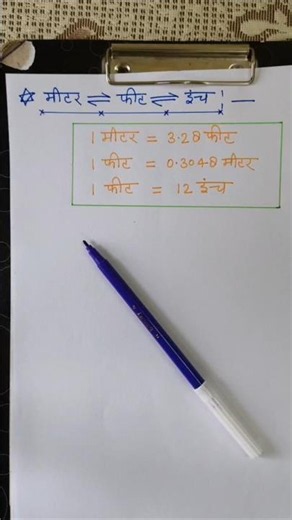 ☆ मीटर ⇌ फीट ⇌ इंच :—
1 मीटर = 3.28 फीट
1 फीट = 0.3048 मीटर
1 फीट = 12 इंच